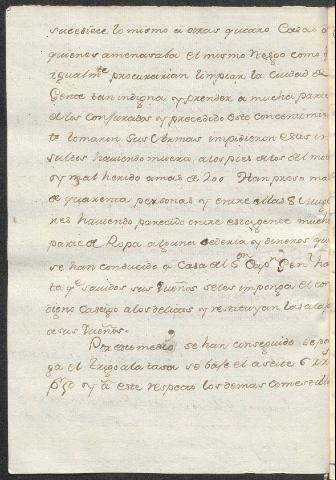 sucediese lo mismo a otras quatro Casas a
quienes amenasaba el mismo riesgo como
igualmte procurarian limpiar la Ciudad de
Gente tan indigna y prender a mucha parte
de los Conjurados y procedido este concentimien
to tomaron sus Armas impidieron estos in
sultos haviendo muerto a los pies de los del
y mal herido a mas de 200 Han preso ma
de quarenta personas y entre ellas 8 Muge
res haviendo parecido entre esta gente mucha
parte de Ropa alguna sederia y dineros que
se han conducido a Casa del Sor Capn Genl ha
ta qe savidos sus Dueños se les imponga el con
digno Castigo a los delictos y restituyan las alajas
a sus Dueños.
Por este medio se han conseguido se po
ga el Trigo a la tasa se baje el aseite 6 rx
pso y a este respecto los demas comestibl